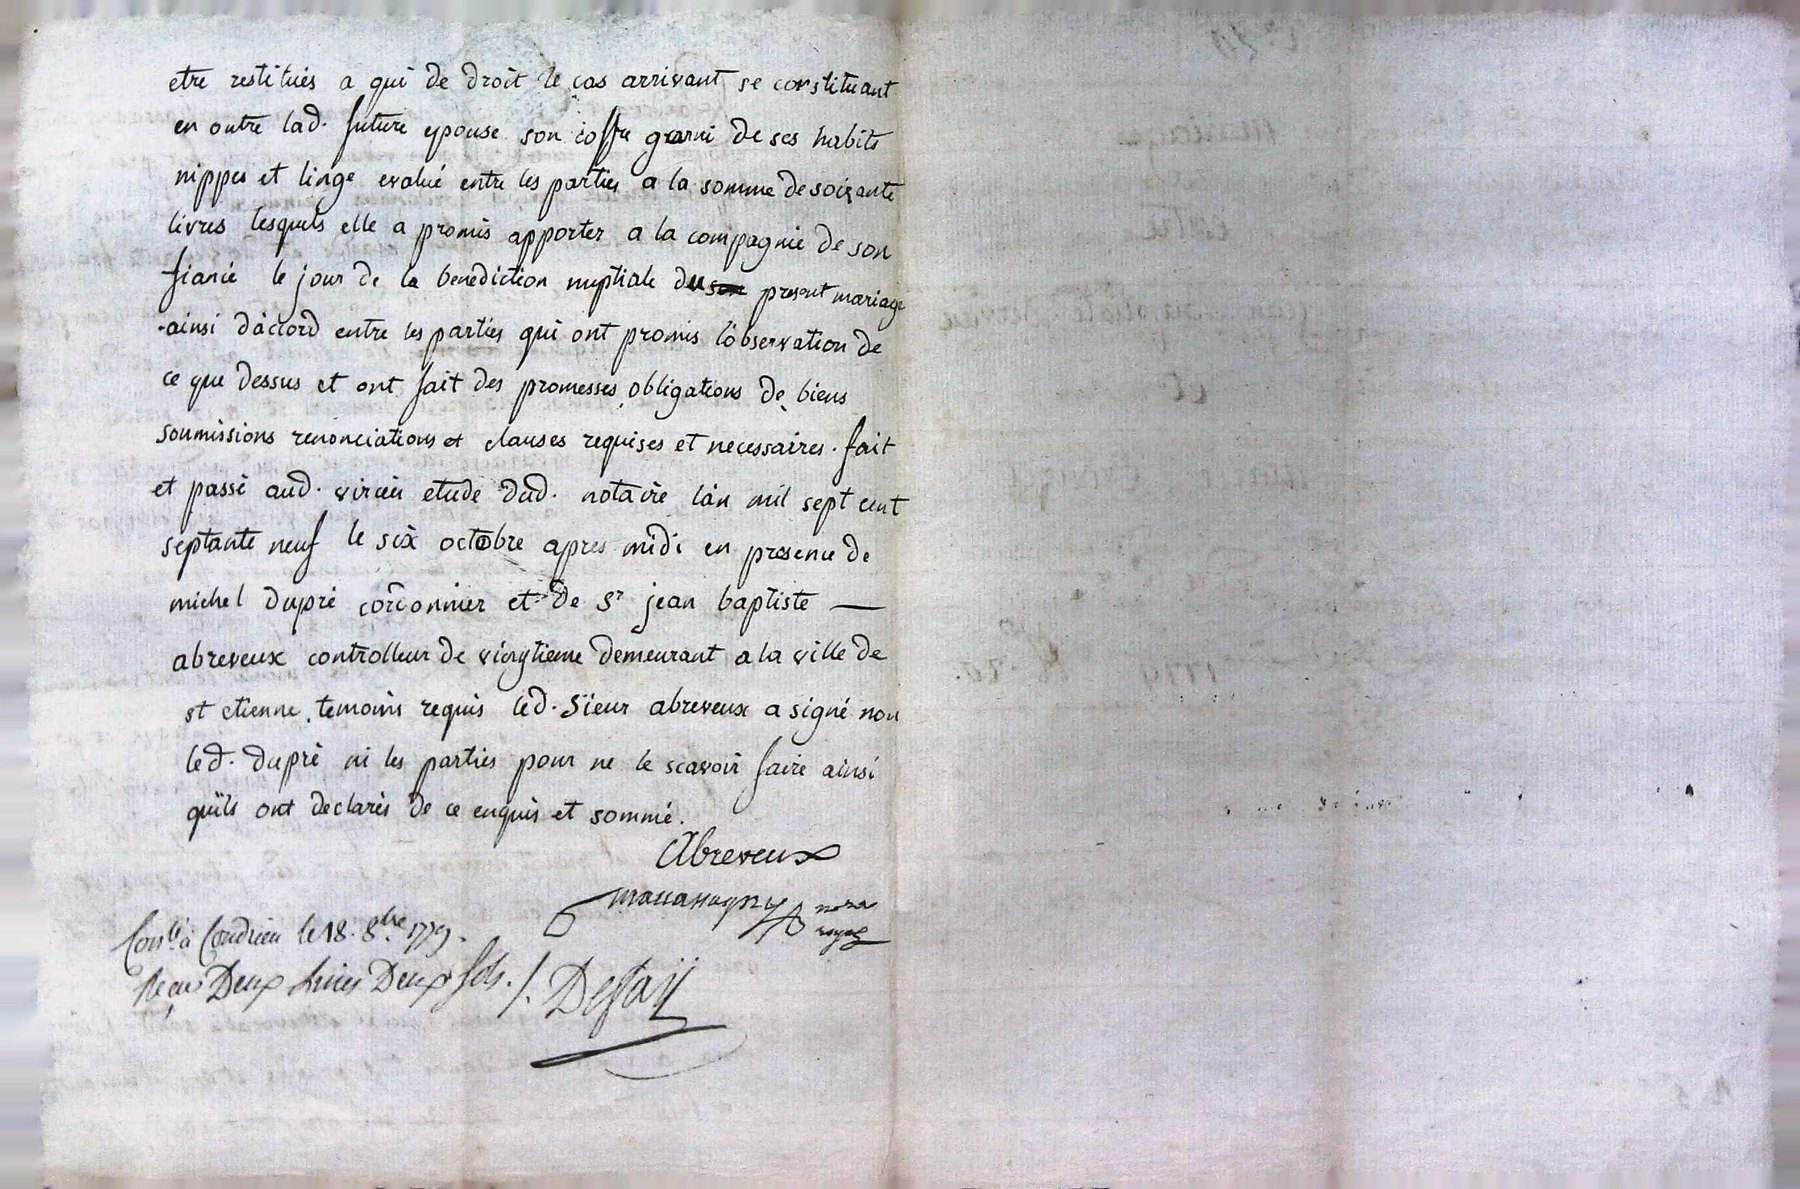 etre restitués a qui de droit le cas arrivant se constituant
en outre lad. future epouse son coffre garni de ses habits
nippes et linge evalué entre les parties a la somme de soixante
livres lesquels elle a promis apporter a la compagnie de son
fiancé le jour de la benediction nuptiale du present mariage
ainsi dàccord entre les parties qui ont promis lobservation de
ce que dessus et ont fait des promesses obligations de biens
soumissions renonciations et clauses requises et necessaires. fait
et passé aud. virieu etude dud. notaire làn mil sept cent
septante neuf le six octobre apres midi en presence de
michel dupré cordonnier et de Sr jean baptiste —
abreveux controlleur de vingtieme demeurant a la ville de
st etienne temoins requis led. Sieur abreveux a signé non
led. dupré ni les parties pour ne le scavoir faire ainsi
quils ont declarés de ce enquis et sommé.
Abreveux
nore
royal
Conlé à Condrieu le 18. 8bre 1779.
Reçu Deux Livres Deux sols. /. Dessaÿ
mariage
entre
jean baptiste
et
1779